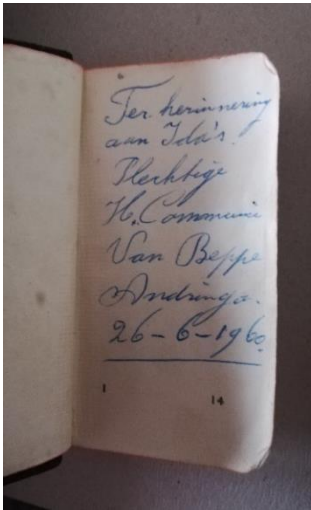 Ter herinnering
aan Ida's.
Plechtige
H. Communie
Van Beppe
Andringa.
26-6-1960.
1 14